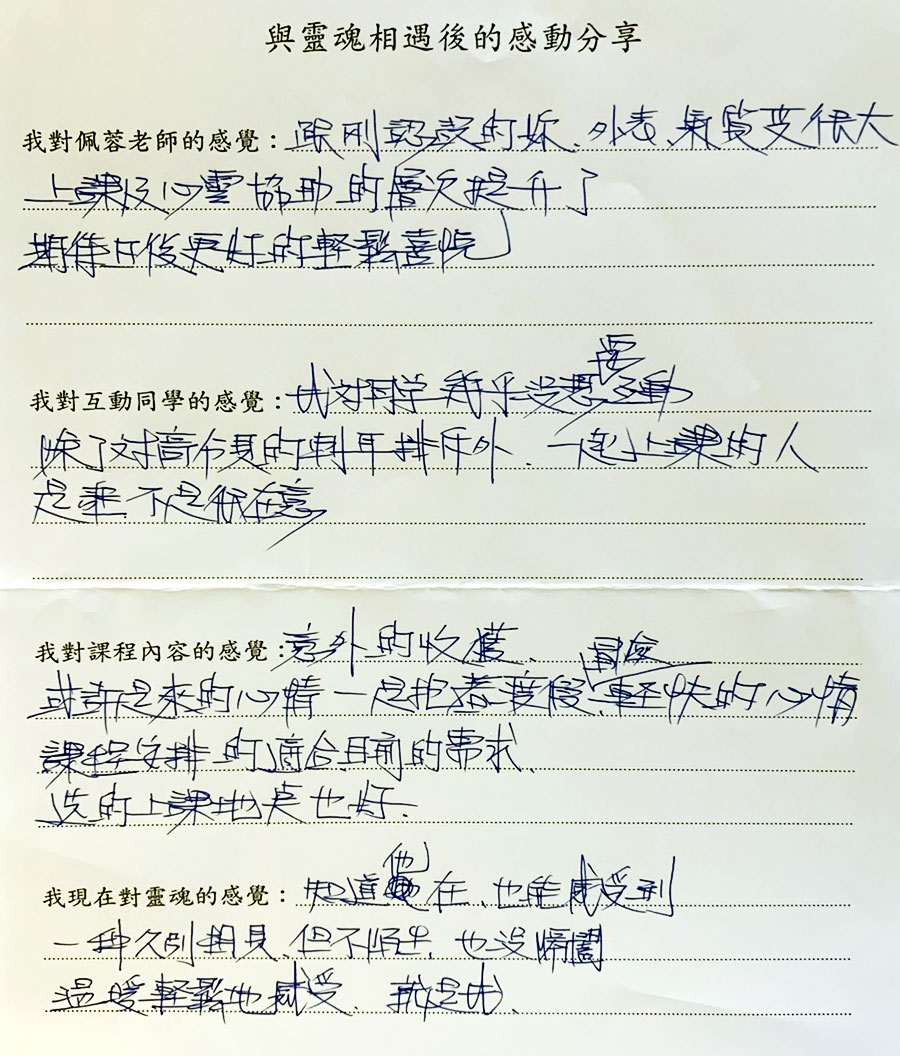 與靈魂相遇後的感動分享
我對佩蓉老師的感覺：跟刚認識的妳、外表、氣質变很大
上課及心靈協助的層次提升了
期待日後更好的輕鬆喜悅
我對互動同學的感覺：我对同学幾乎没想要互動
除了对高分貝的刺耳排斥外、一起上課的人
是誰、不是很在意
我對課程內容的感覺：意外的收獲、
或許是來的心情一是抱著渡假、冒險、輕快的心情
課程安排的適合目前的需求、
选的上課地点也好、
我現在對靈魂的感覺：知道他在、也能感受到
一種久別相見、但不陌生、也没隔閡
溫暖輕鬆地感受、就是我、